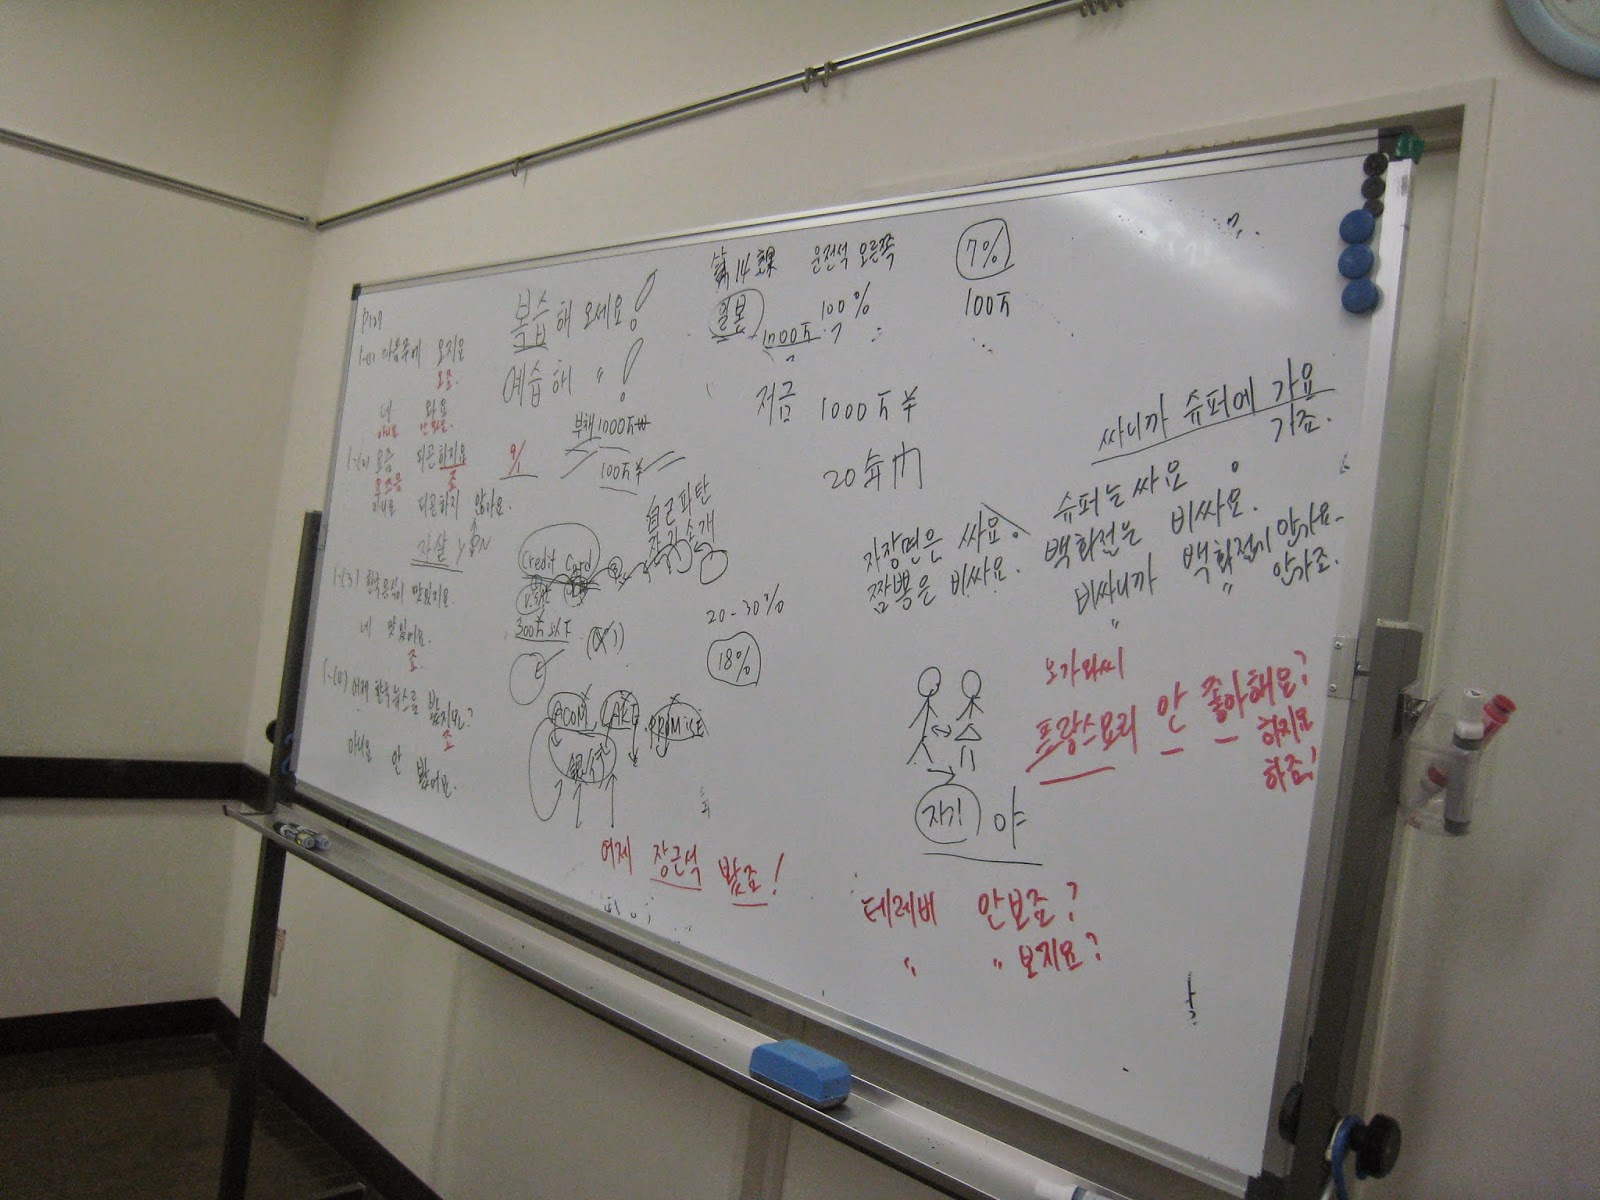 P129
1-(1) 다음주에 오지요
오죠.
네 와요
아니요 안와요.
1-(2) 요즘 피곤하지요
죠
아니요 피곤하지 않아요.
자살
1-(3) 한국음식이 맛있지요.
네 맛있어요.
죠.
1-(4) 어제 한국뉴스를 봤지요?
죠
아니요 안 봤어요.
복습해 오세요!
예습해 〃 !
부채 1000万
100万¥
自己파탄
자기소개
Credit Card
300万以下
20-30%
18%
ACOM, PROMISE
銀行
어제 장근석 봤죠!
第14課 운전석 오른쪽 7%
일본 100% 100万
1000万
저금 1000万¥
20年内
싸니까 슈퍼에 가요
가죠.
슈퍼는 싸요.
백화점은 비싸요.
비싸니까 백화점에 안가요.
〃 〃 안가죠.
자장면은 싸요.
짬뽕은 비싸요.
오가와씨
프랑스요리 안 좋아해요?
하지요
하죠?
자기 야
테레비 안보죠?
〃 〃 보지요?